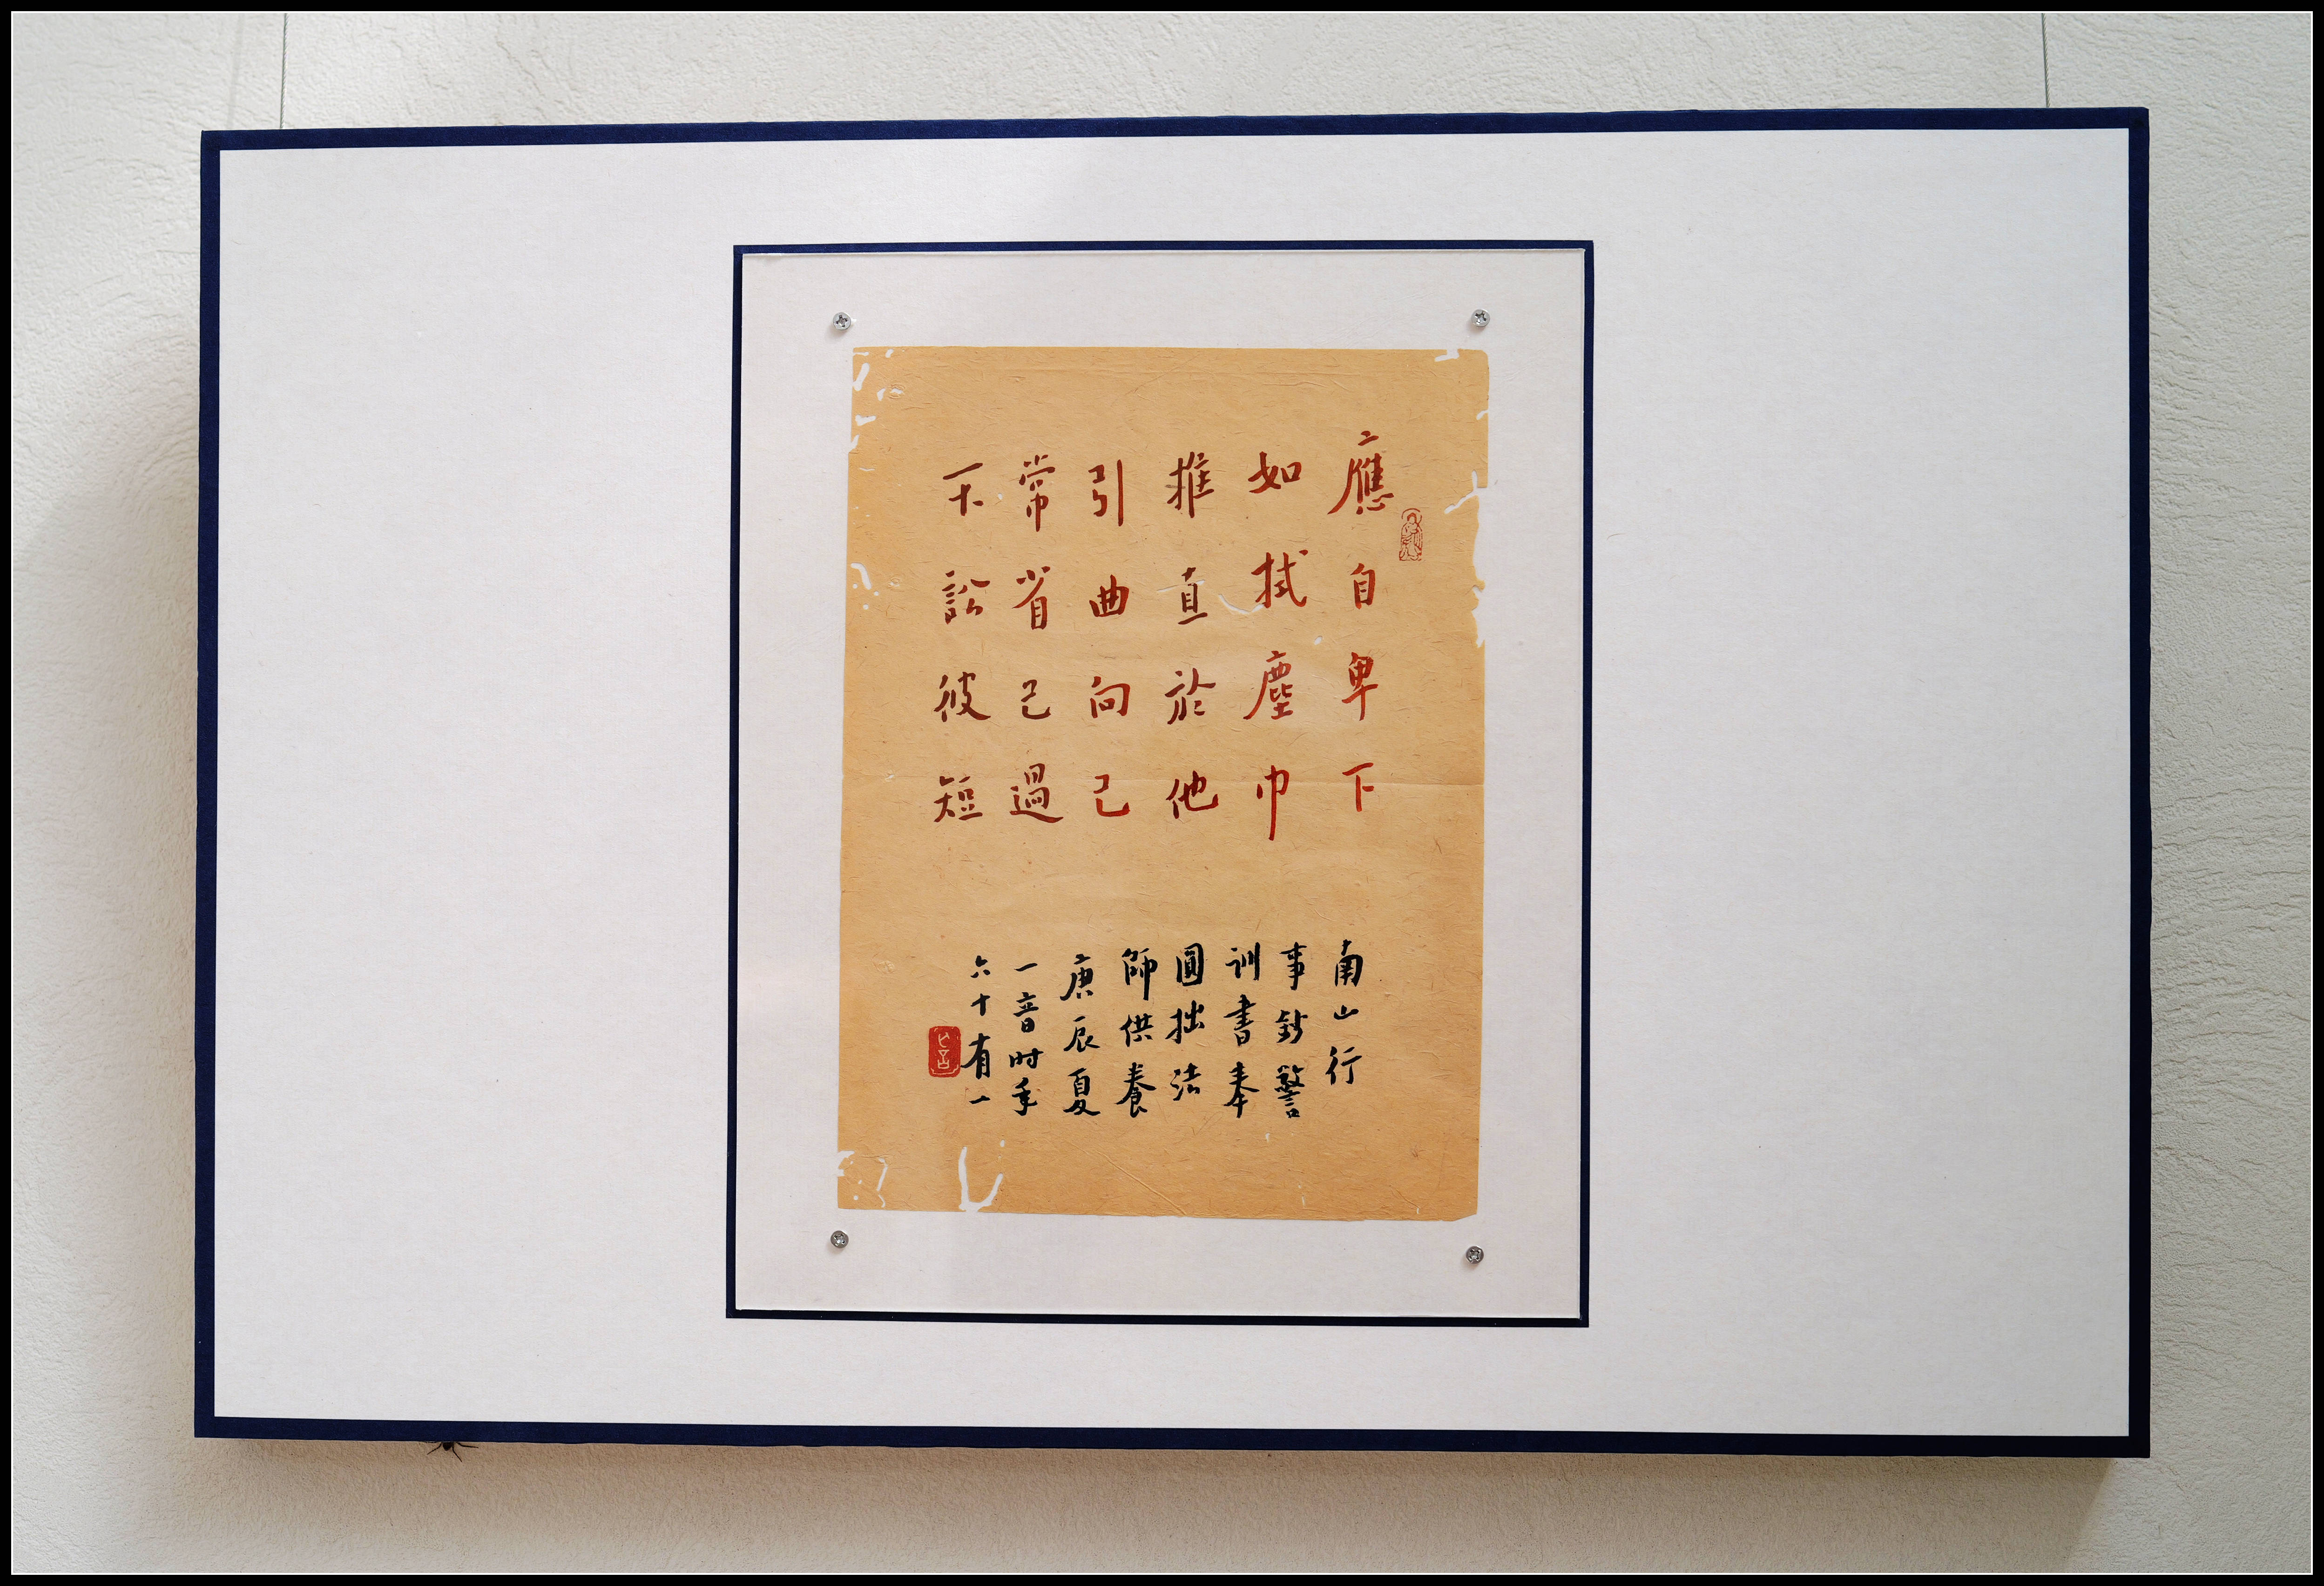 應自卑下
如拭塵巾
推直於他
引曲向己
常省己過
不訟彼短
南山行
事鈔警
訓書奉
圓拙法
師供養
庚辰夏
一音时年
六十有一